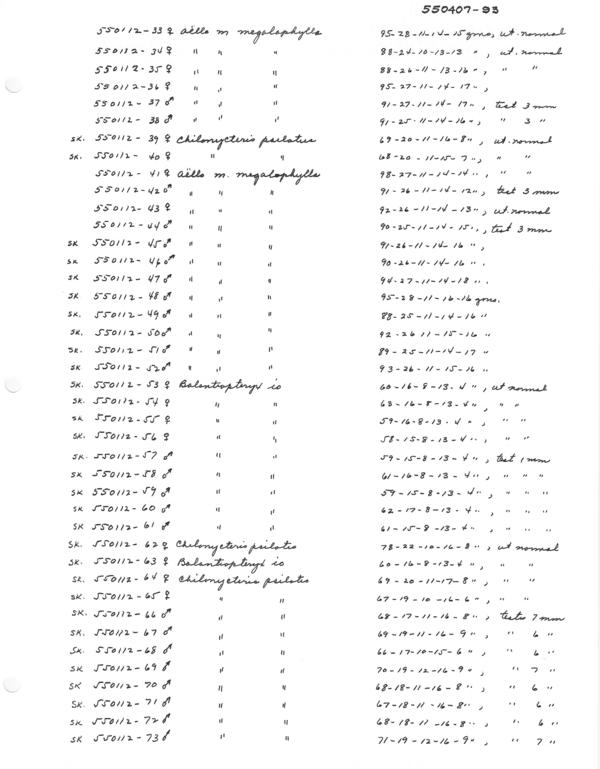 550407-93
550112-33 ♀ Aëllo m megalophylla 95-28-11-14-15 gms, ut. normal
550112-34 ♀ " " " 88-24-10-13-13 ", ut. normal
550112-35 ♀ " " " 88-26-11-13-16 ", " "
550112-36 ♀ " " " 95-27-11-14-17 ",
550112-37 ♂ " " " 91-27-11-14-17 ", test 3 mm
550112-38 ♂ " " " 91-25-11-14-16 ", " 3 "
SK. 550112-39 ♀ Chilonycteris psilotis 69-20-11-16-8 ", ut. normal
SK. 550112-40 ♀ " " 68-20-11-15-7 ", " "
550112-41 ♀ Aëllo m. megalophylla 98-27-11-14-14 ", " "
550112-42 ♂ " " " 91-26-11-14-12 ", test 3 mm
550112-43 ♀ " " " 92-26-11-14-13 ", ut normal
550112-44 ♂ " " " 90-25-11-14-15 ", test 3 mm
SK 550112-45 ♂ " " " 91-26-11-14-16 ",
SK 550112-46 ♂ " " " 90-26-11-14-16 ".
SK 550112-47 ♂ " " " 94-27-11-14-18 ".
SK 550112-48 ♂ " " " 95-28-11-16-16 gms.
SK. 550112-49 ♂ " " " 88-25-11-14-16 "
SK. 550112-50 ♂ " " " 92-26 11-15-16 "
SK. 550112-51 ♂ " " " 89-25-11-14-17 "
SK 550112-52 ♂ " " " 93-26-11-15-16 "
SK. 550112-53 ♀ Balantiopteryx io 60-16-8-13-4 ", ut normal
SK. 550112-54 ♀ " " 63-16-8-13-4 ", " "
SK 550112-55 ♀ " " 59-16-8-13-4 ", " "
SK. 550112-56 ♀ " " 58-15-8-13-4 ", " "
SK. 550112-57 ♂ " " 59-15-8-13-4 ", test 1 mm
SK 550112-58 ♂ " " 61-16-8-13-4 ", " " "
SK 550112-59 ♂ " " 59-15-8-13-4 ", " " "
SK 550112-60 ♂ " " 62-17-8-13-4 ", " " "
SK 550112-61 ♂ " " 61-15-8-13-4 ", " " "
SK. 550112-62 ♀ Chilonycteris psilotis 78-22-10-16-8 ", ut normal
SK 550112-63 ♀ Balantiopteryx io 60-16-8-13-4 ", " "
SK. 550112-64 ♀ Chilonycteris psilotis 69-20-11-17-8 ", " "
SK. 550112-65 ♀ " " 67-19-10-16-6 ", " "
SK. 550112-66 ♂ " " 68-17-11-16-8 ", testis 7 mm
SK. 550112-67 ♂ " " 69-19-11-16-9 ", " 6 "
SK. 550112-68 ♂ " " 66-17-10-15-6 ", " 6 "
SK 550112-69 ♂ " " 70-19-12-16-9 ", " 7 "
SK 550112-70 ♂ " " 68-18-11-16-8 ", " 6 "
SK. 550112-71 ♂ " " 67-18-11-16-8 ", " 6 "
SK 550112-72 ♂ " " 68-18-11-16-8 ", " 6 "
SK 550112-73 ♂ " " 71-19-12-16-9 ", " 7 "